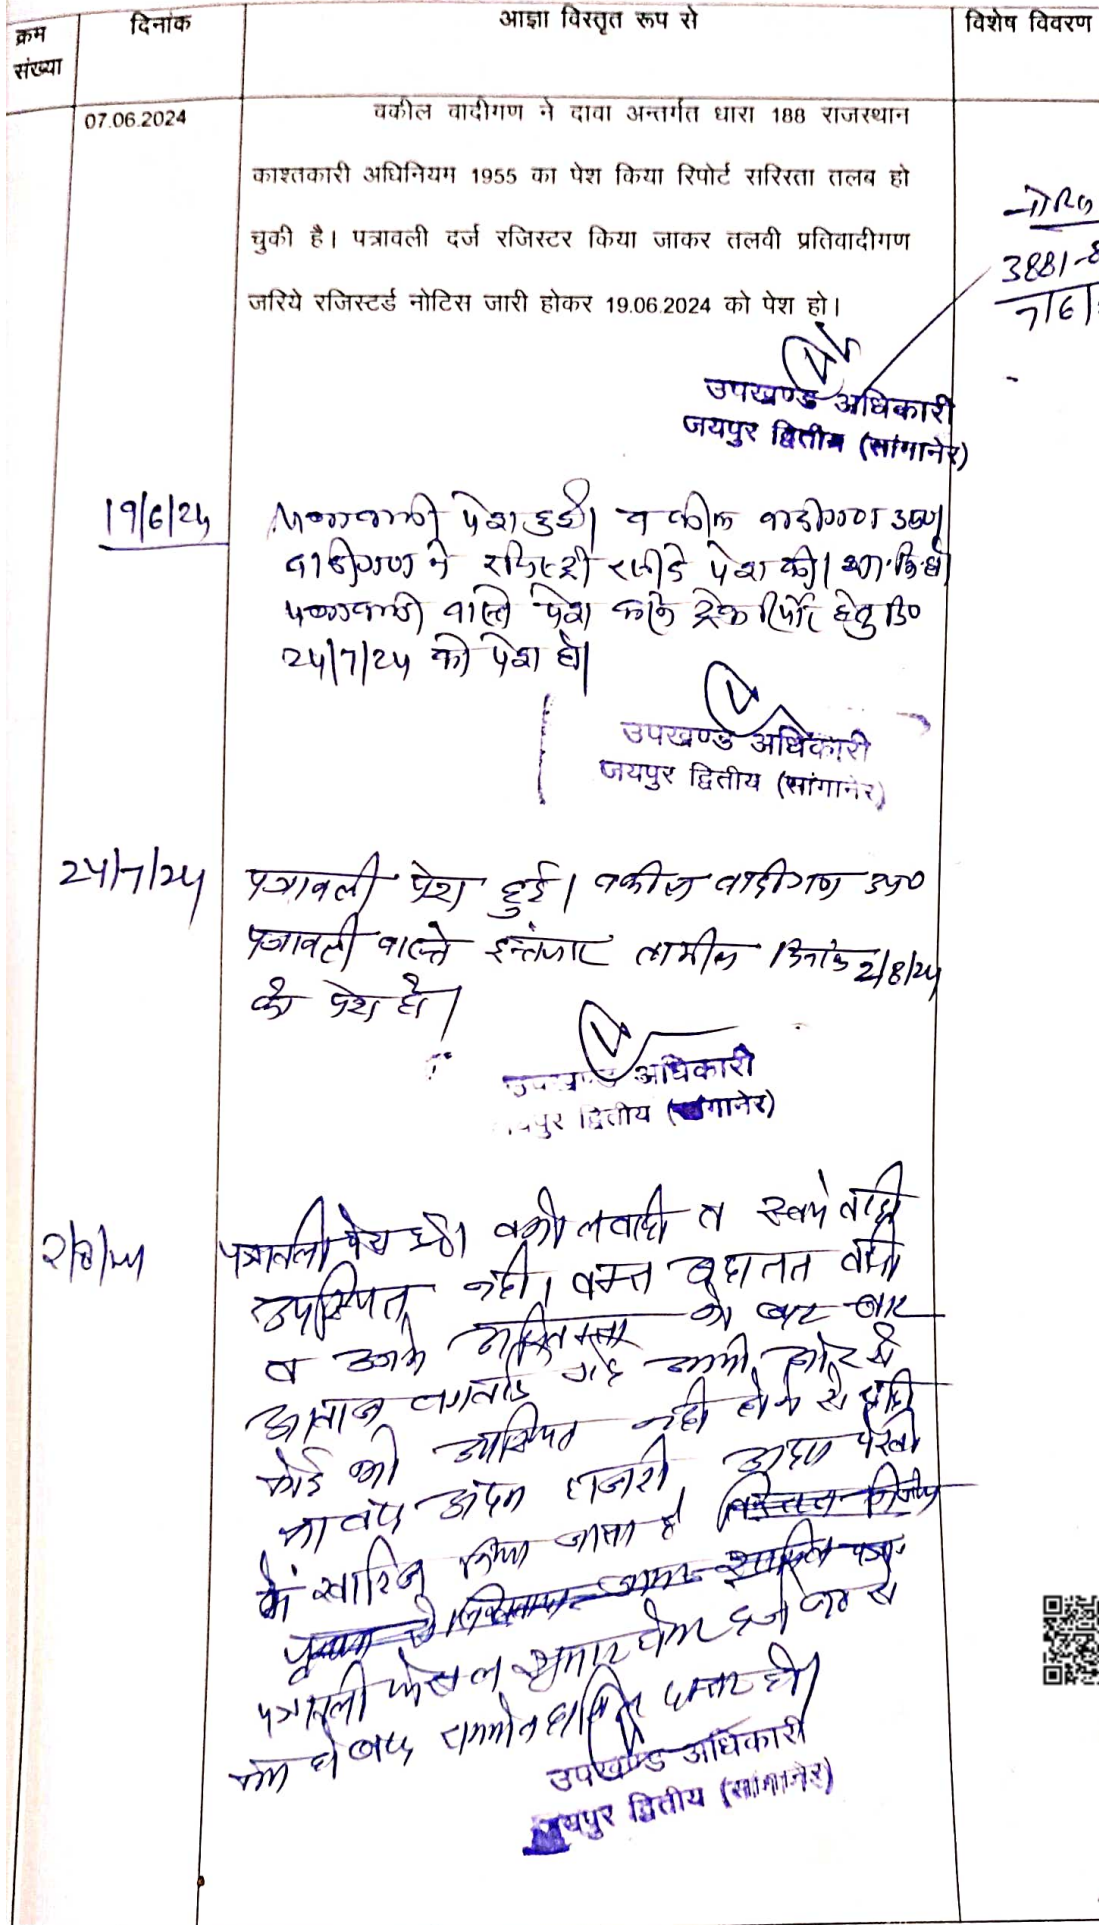 क्रम संख्या
दिनांक
आज्ञा विस्तृत रूप से
विशेष विवरण
07.06.2024
वकील वादीगण ने दावा अन्तर्गत धारा 188 राजस्थान
काश्तकारी अधिनियम 1955 का पेश किया रिपोर्ट सरिस्ता तलब हो
चुकी है। पत्रावली दर्ज रजिस्टर किया जाकर तलवी प्रतिवादीगण
जरिये रजिस्टर्ड नोटिस जारी होकर 19.06.2024 को पेश हो।
3881-8
7/6/
उपखण्ड अधिकारी
जयपुर द्वितीय (सांगानेर)
19/6/24
पत्रावली पेश हुई। वकील वादीगण उप०
वादीगण ने रजिस्ट्री रसीदे पेश की।
पत्रावली वास्ते पेश करने ट्रेक रिपोर्ट हेतु दि०
24/7/24 को पेश हो।
उपखण्ड अधिकारी
जयपुर द्वितीय (सांगानेर)
24/7/24
पत्रावली पेश हुई। वकील वादीगण उप०
पत्रावली वास्ते इन्तजार तामील दिनांक 2/8/24
को पेश हो।
उपखण्ड अधिकारी
यपुर द्वितीय (सांगानेर)
2/8/24
पत्रावली पेश हुई। वकील वादी व स्वयं वादी
उपस्थित नही। वक्त अदालत वादी
व उनके अधिवक्ता को बार-बार
आवाज लगवाई गई उनकी ओर से
कोई भी उपस्थित नही होने से वादी
का वाद अदम हाजरी अदम पेरवी
में खारिज किया जाता है
पत्रावली फैसल शुमार होकर दर्ज नम्बर से
कम हो बाद दाखिल दफ्तर हो।
उपखण्ड अधिकारी
जयपुर द्वितीय (सांगानेर)